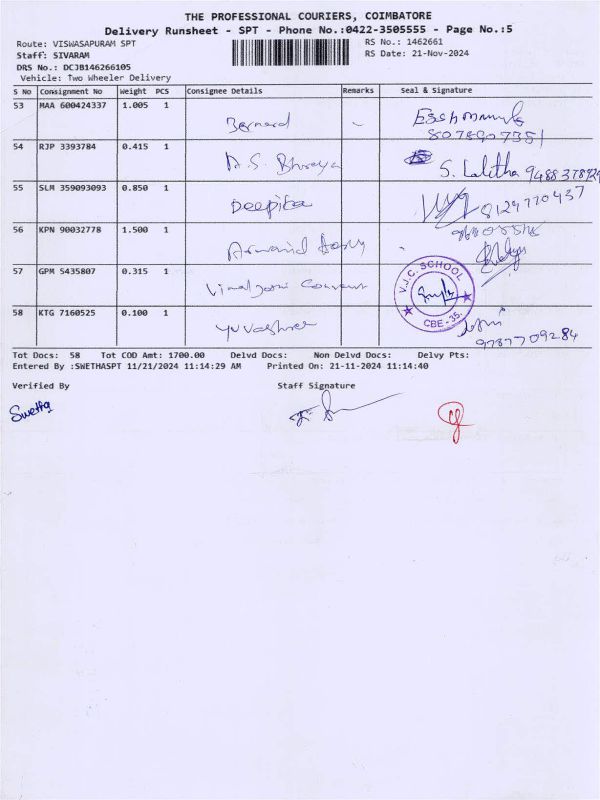 THE PROFESSIONAL COURIERS, COIMBATORE
Delivery Runsheet - SPT - Phone No.:0422-3505555 - Page No.:5
Route: VISWASAPURAM SPT RS No.: 1462661
Staff: SIVARAM RS Date: 21-Nov-2024
DRS No.: DCJB146266105
Vehicle: Two Wheeler Delivery
S No Consignment No Weight PCS Consignee Details Remarks Seal & Signature
53 MAA 600424337 1.005 1 Bernard
8078907381
54 RJP 3393784 0.415 1 A.S. S. Lalitha
55 SLM 359093093 0.850 1 Deepika 8124770437
56 KPN 90032778 1.500 1
57 GPM 5435807 0.315 1 Convent V.J.C. SCHOOL CBE-35.
58 KTG 7160525 0.100 1 Yuvashree
9787709284
Tot Docs: 58 Tot COD Amt: 1700.00 Delvd Docs: Non Delvd Docs: Delvy Pts:
Entered By :SWETHASPT 11/21/2024 11:14:29 AM Printed On: 21-11-2024 11:14:40
Verified By Staff Signature
Swetha